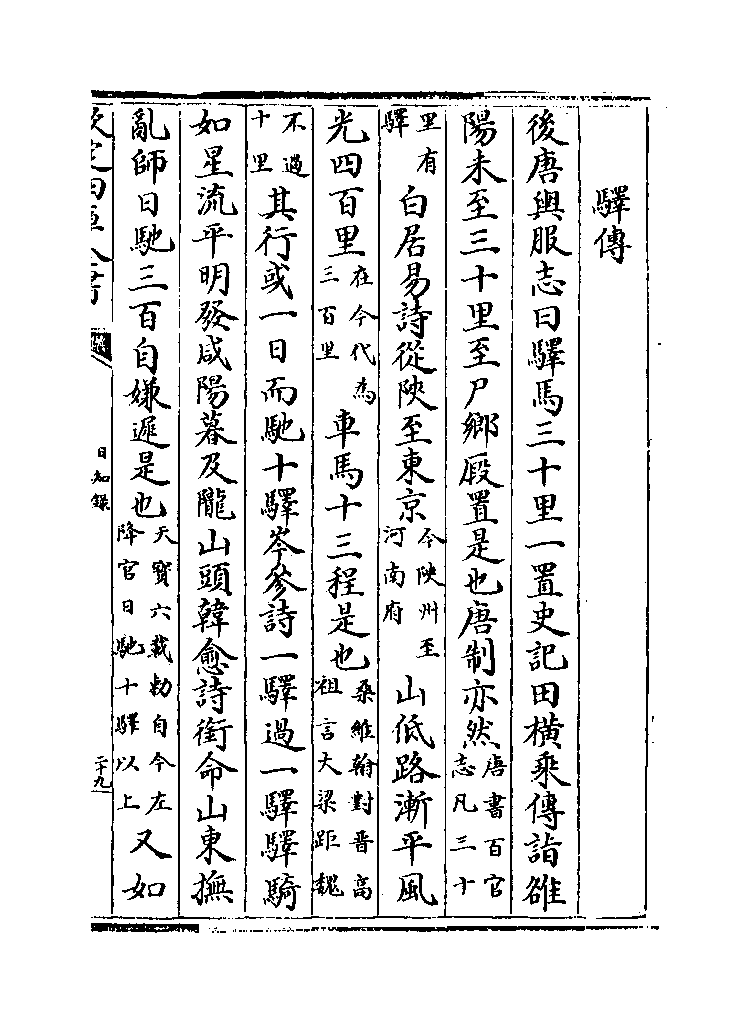 驛傳
後唐輿服志曰驛馬三十里一置史記田橫乘傳詣雒
陽未至三十里至尸鄉廄置是也唐制亦然唐書百官志凡三十
里有驛白居易詩從陝至東京今陝州至河南府山低路漸平風
光四百里在今代為三百里車馬十三程是也桑維翰對晉高祖言大梁距魏
不過十里其行或一日而馳十驛岑參詩一驛過一驛驛騎
如星流平明發咸陽暮及隴山頭韓愈詩銜命山東撫
亂師日馳三百自嫌遲是也天寶六載敕自今左降官日馳十驛以上又如
欽定四庫全書
日知錄
二十九